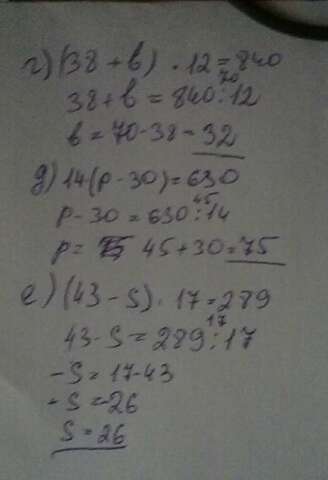 г) (38 + b) · 12 = 840
38 + b = 840 : 12
70
b = 70 - 38 = 32
д) 14(p - 30) = 630
p - 30 = 630 : 14
45
p = 45 + 30 = 75
е) (43 - S) · 17 = 289
43 - S = 289 : 17
17
- S = 17 - 43
- S = -26
S = 26